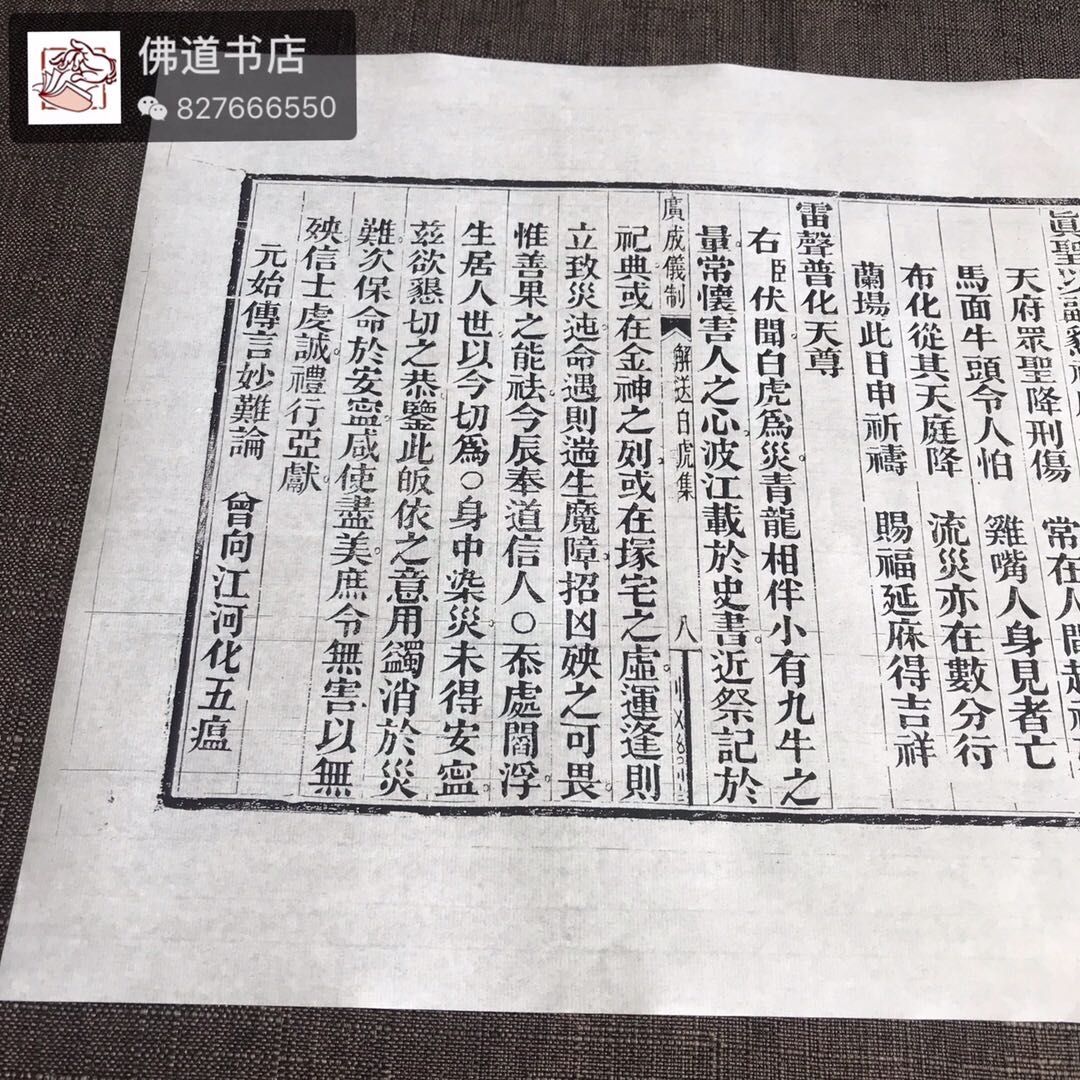 佛道书店
827666550
天府眾聖降刑傷　常在人間起
馬面牛頭令人怕　雞嘴人身見者亡
布化從其天庭降　流災亦在數分行
蘭場此日申祈禱　賜福延麻得吉祥
雷聲普化天尊
右臣伏聞白虎為災青龍相伴小有九牛之
量常懷害人之心波江載於史書近祭記於
廣成儀制　解送白虎集　八
祀典或在金神之列或在塚宅之虛運逢則
立致災迍命遇則遄生魔障招凶殃之可畏
惟善果之能祛今辰奉道信人○忝處閻浮
生居人世以今切為○身中染災未得安寍
茲欲懇切之恭鑒此皈依之意用蠲消於災
難次保命於安寍咸使盡美庶令無害以無
殃信士虔誠禮行亞獻
元始傳言妙難論　曾向江河化五瘟